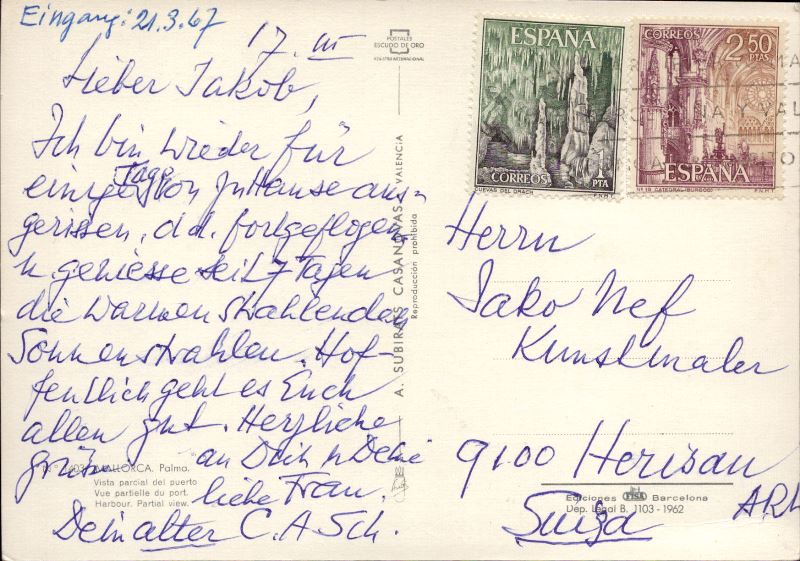 Eingang: 21.3.67
17. III
Lieber Jakob,
Ich bin wieder für
einige Tage von zu Hause aus-
gerissen, d.h. fortgeflogen
u. geniesse seit 7 Tagen
die warmen strahlenden
Sonnenstrahlen. Hof-
fentlich geht es Euch
allen gut. Herzliche
grüsse an Dich u Deine
liebe Frau.
Dein alter C. A Sch.
MALLORCA. Palma.
Vista parcial del puerto
Vue partielle du port.
Harbour. Partial view.
POSTALES
ESCUDO DE ORO
A. SUBIRATS CASANOVAS VALENCIA
Reproducción prohibida
ESPAÑA
CORREOS
1 PTA
CUEVAS DEL DRACH
F.N.M.T.
CORREOS
2.50
PTAS
ESPAÑA
CATEDRAL (BURGOS)
F.N.M.T.
Herrn
Jako Nef
Kunstmaler
9100 Herisau
AR
Suiza
Ediciones FISA Barcelona
Dep. Legal B. 1103 - 1962